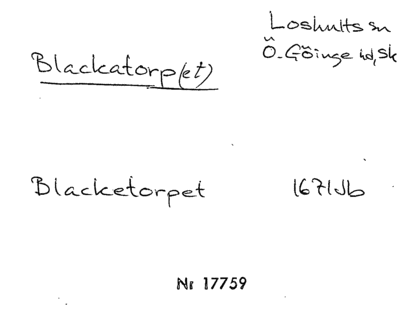 Loshults sn
Ö. Göinge hd, Sk
Blackatorp(et)
Blacketorpet 1671 Jb
Nr 17759